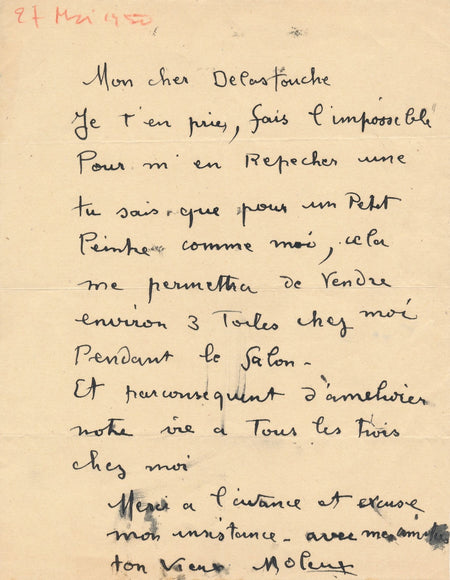 27 Mai 1950
Mon cher Delastouche
Je t'en pries, fais l'impossible
Pour m'en Repecher une
tu sais que pour un Petit
Peintre comme moi, cela
me permettra de Vendre
environ 3 Toiles chez moi
Pendant le Salon -
Et parconsequent d'ameliorer
notre vie a Tous les trois
chez moi
Merci a l'avance et excuse
mon insistance - avec mes
ton Vieux